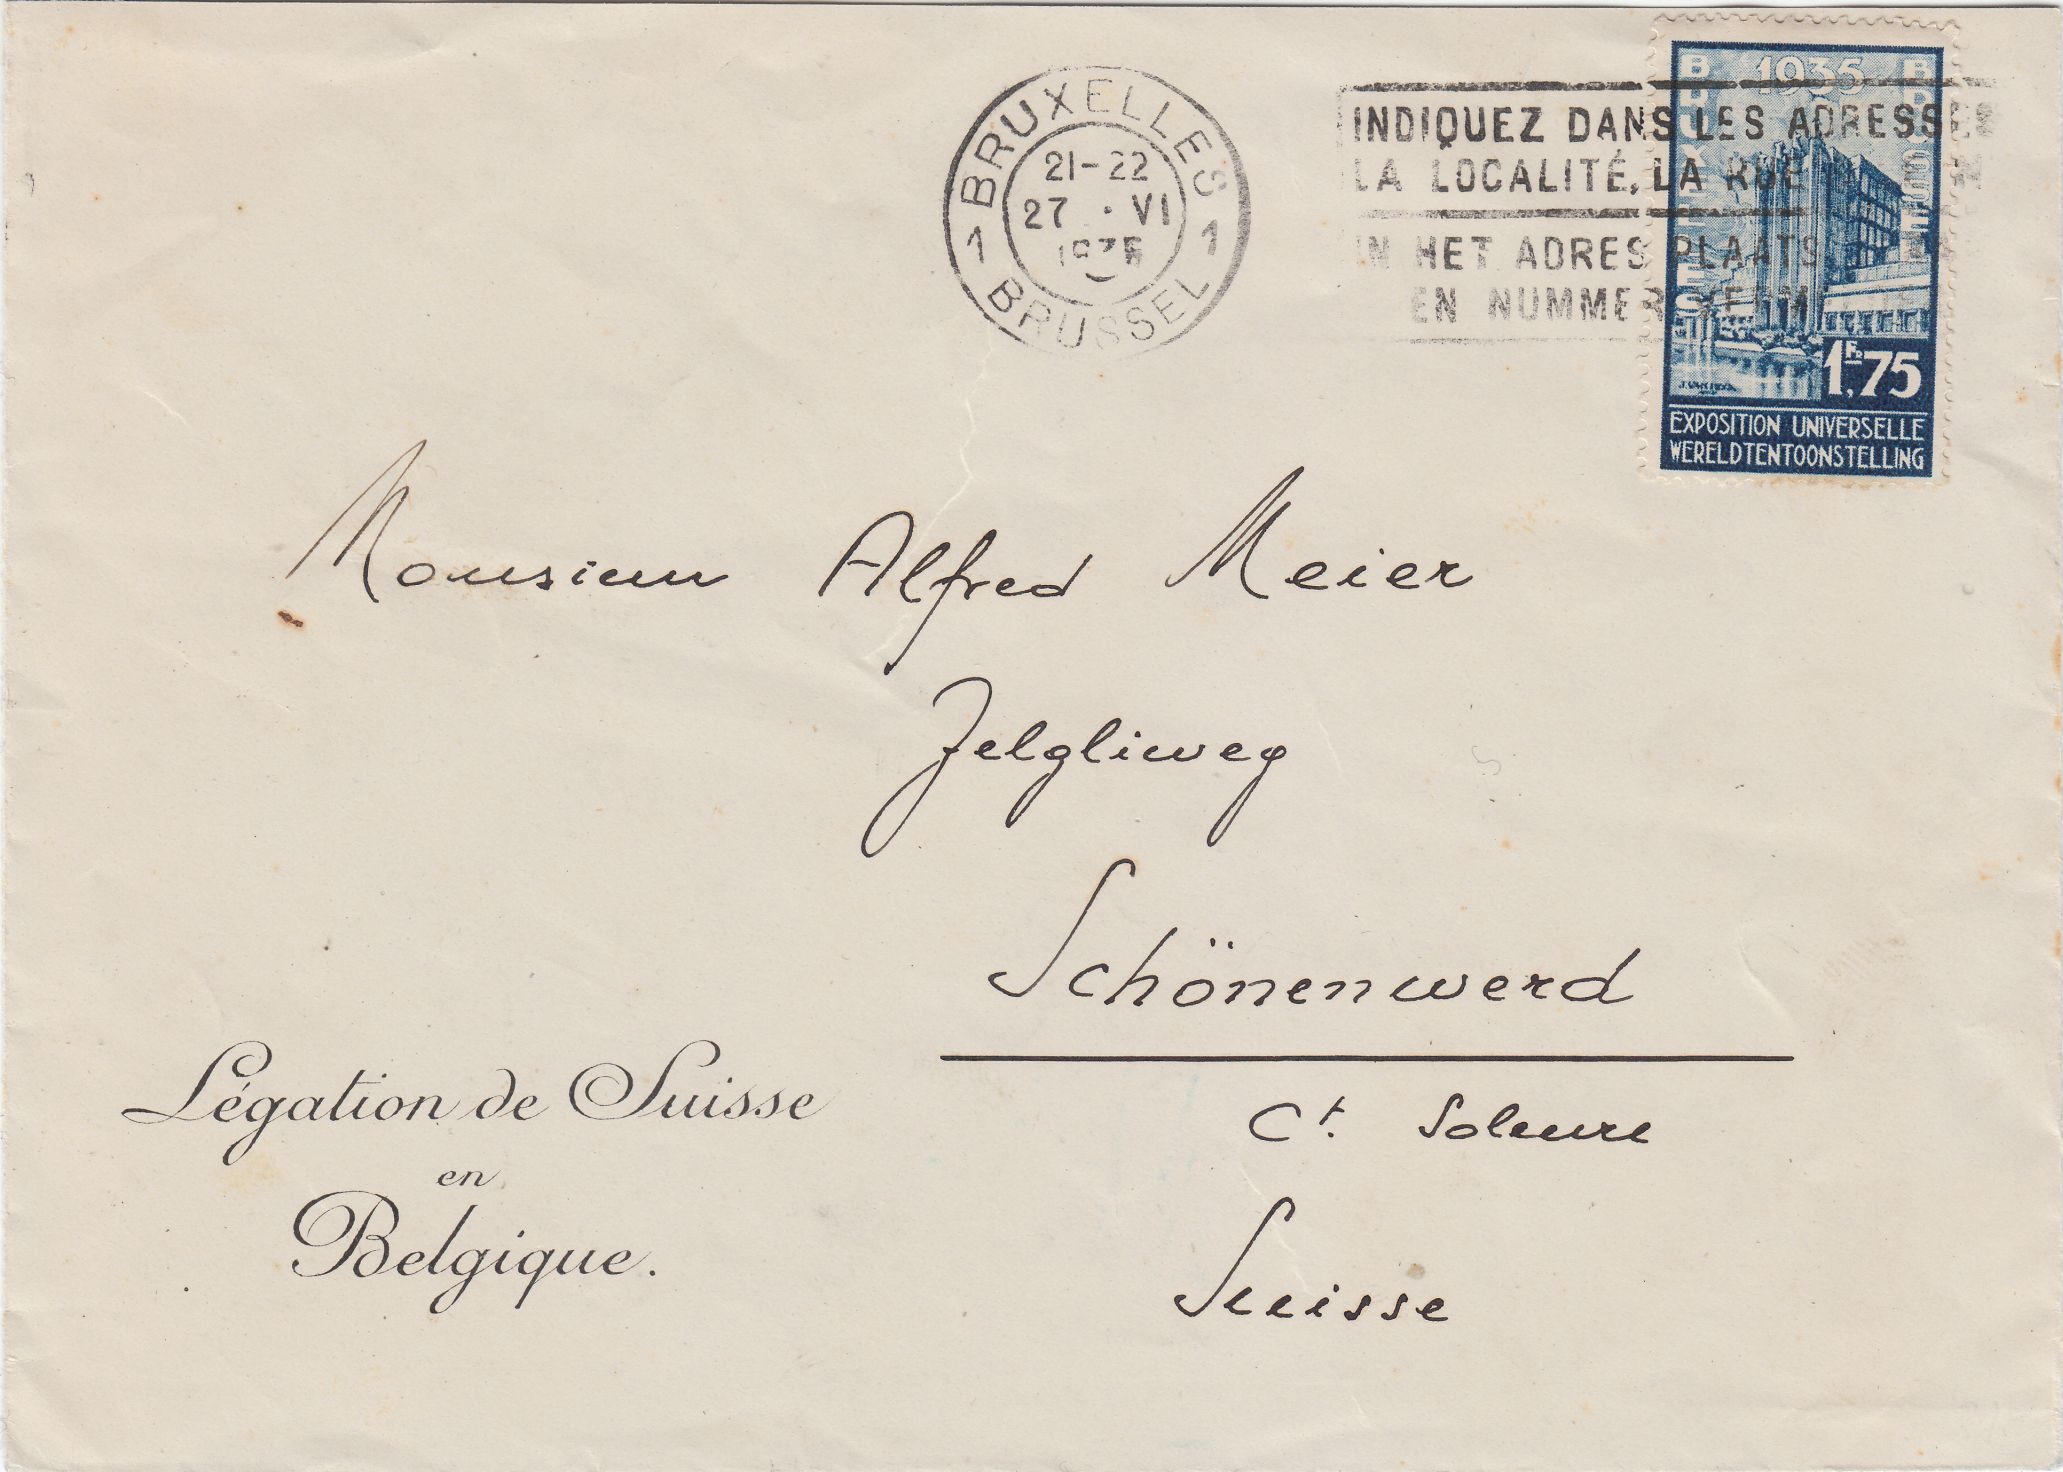 BRUXELLES
21-22
27 · VI
1935
1 1
BRUSSEL
INDIQUEZ DANS LES ADRESSES
LA LOCALITÉ, LA RUE
IN HET ADRES PLAATS
EN NUMMER
1935
BRUXELLES
BRUSSEL
1Fr,75
EXPOSITION UNIVERSELLE
WERELDTENTOONSTELLING
Monsieur Alfred Meier
Zelgliweg
Schönenwerd
Ct. Soleure
Suisse
Légation de Suisse
en
Belgique.